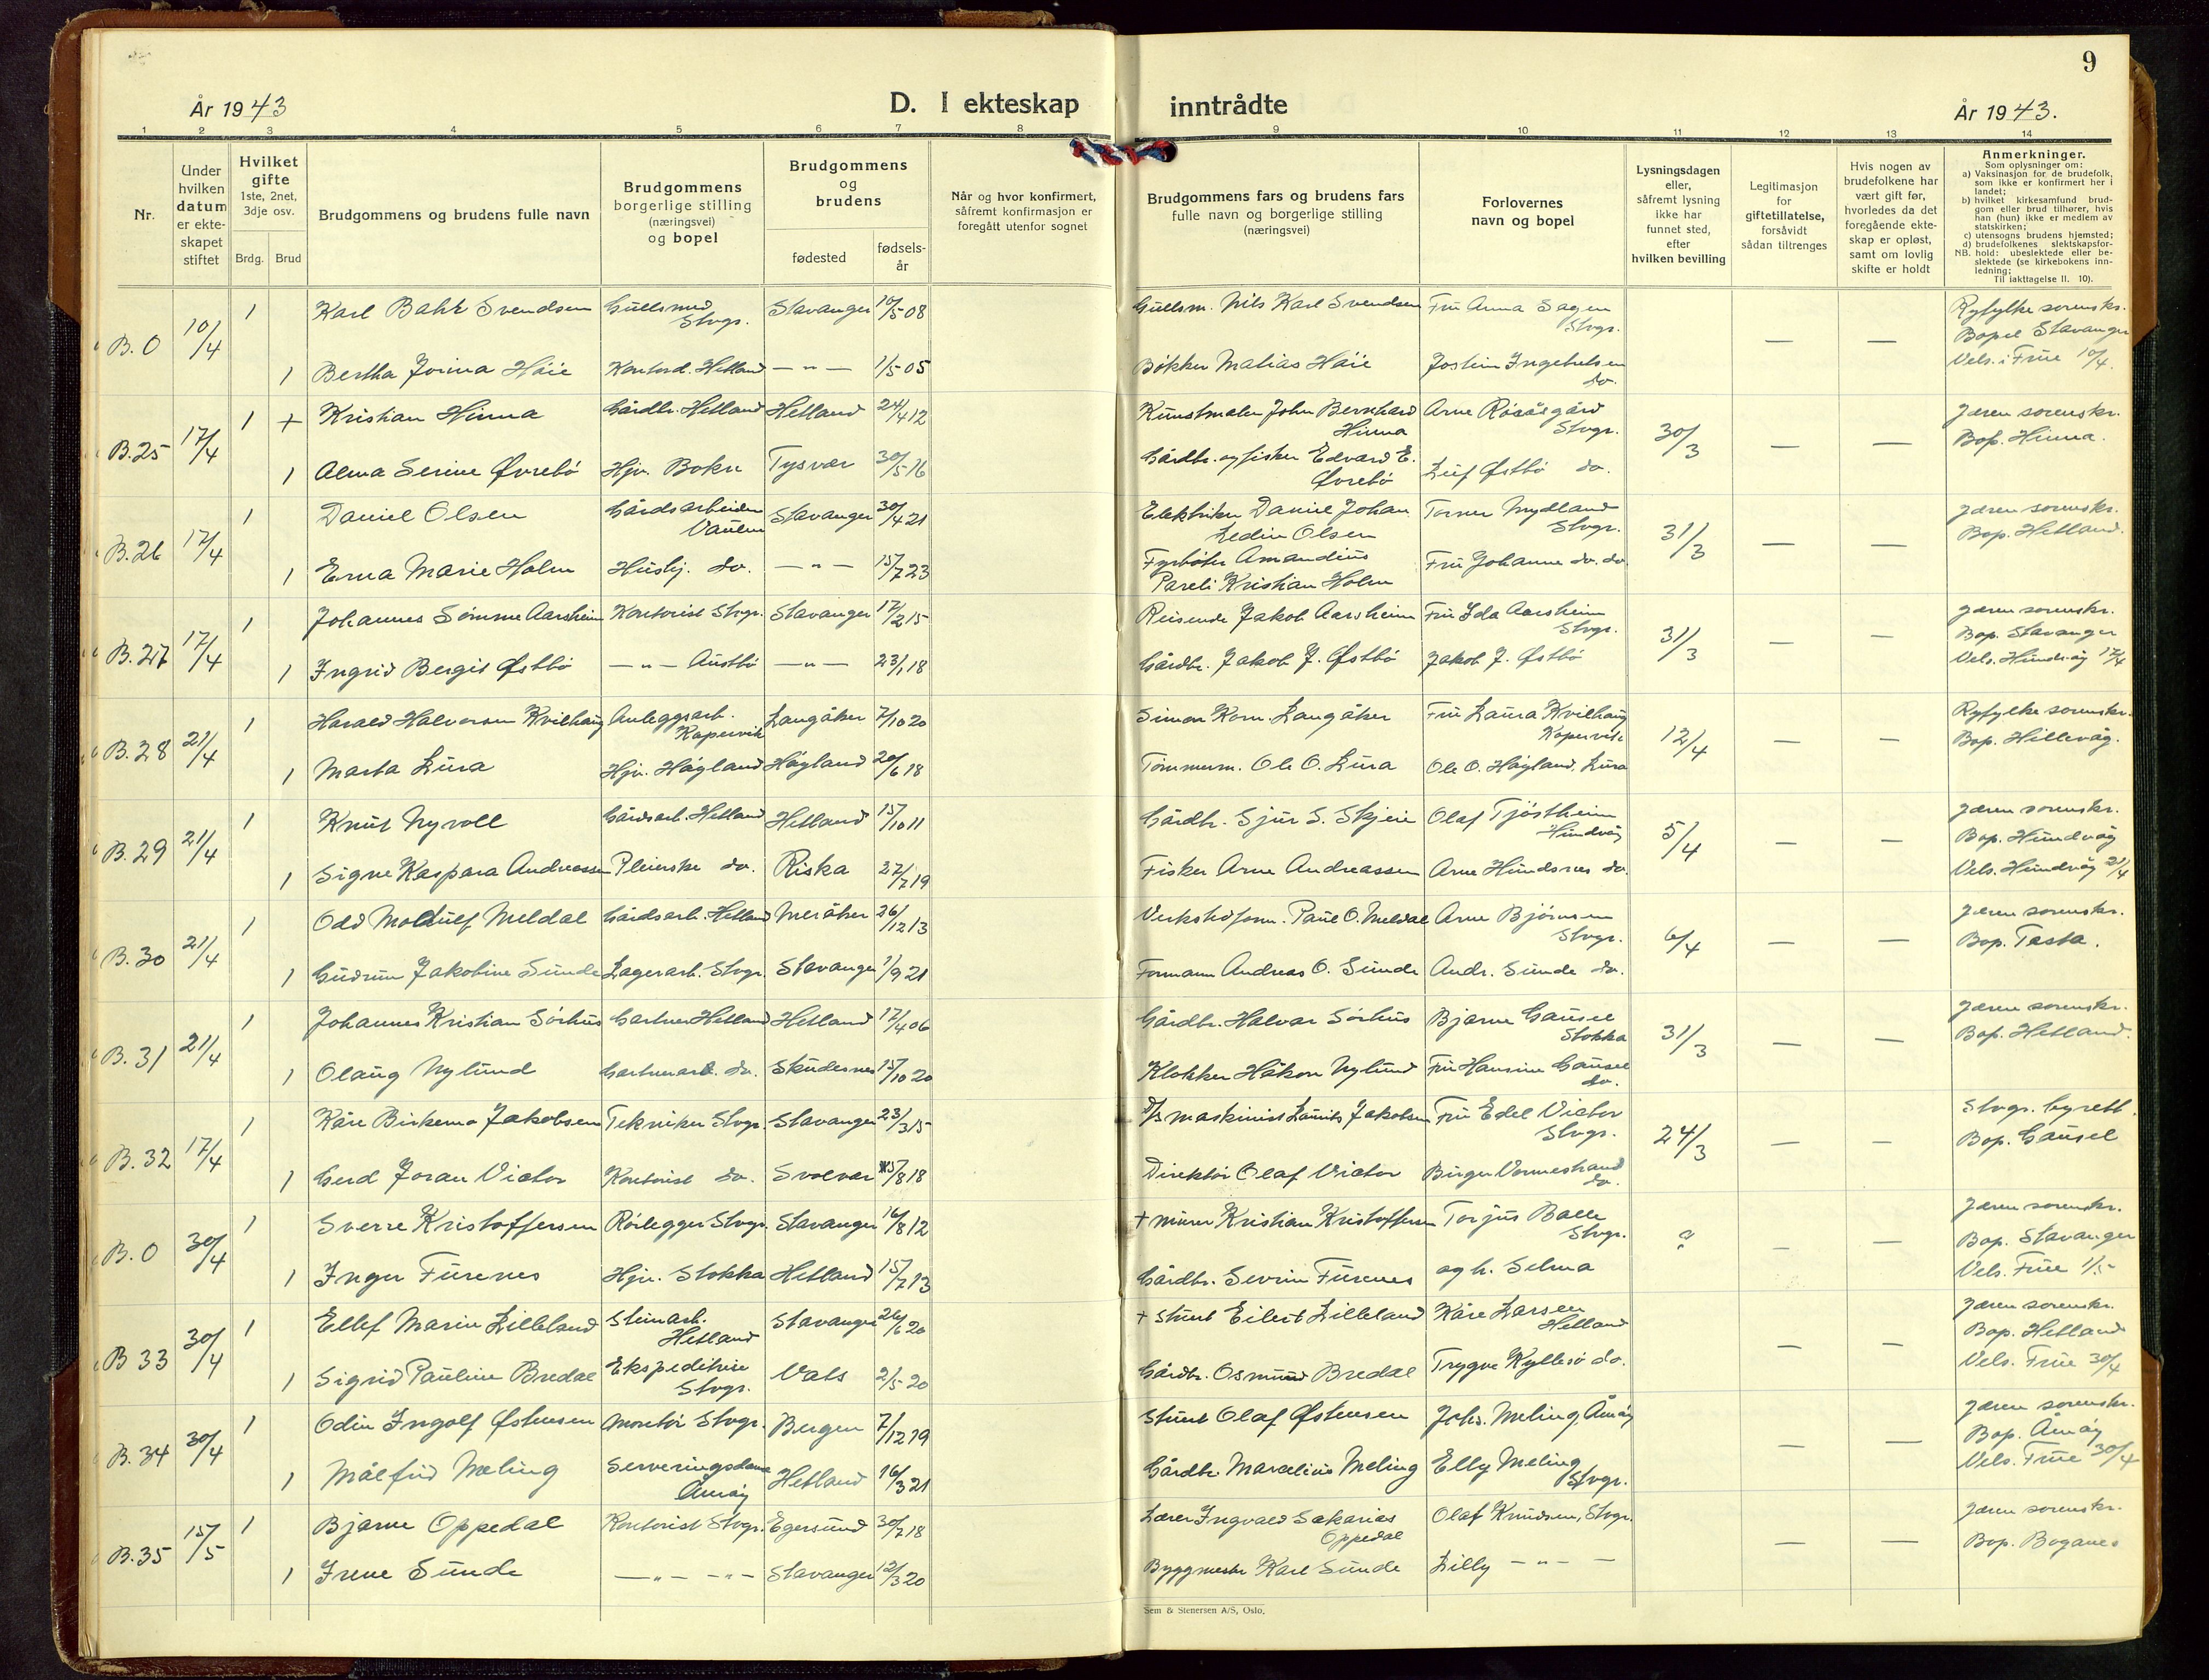 9
År 1943
D. I ekteskap inntrådte
År 1943.
1 2 3 4 5 6 7 8 9 10 11 12 13 14
Nr.
Under hvilken datum er ekteskapet stiftet
Hvilket gifte 1ste, 2net, 3dje osv.
Brdg. Brud
Brudgommens og brudens fulle navn
Brudgommens borgerlige stilling (næringsvei) og bopel
Brudgommens og brudens
fødested
fødsels-år
Når og hvor konfirmert, såfremt konfirmasjon er foregått utenfor sognet
Brudgommens fars og brudens fars fulle navn og borgerlige stilling (næringsvei)
Forlovernes navn og bopel
Lysningsdagen eller, såfremt lysning ikke har funnet sted, efter hvilken bevilling
Legitimasjon for giftetillatelse, forsåvidt sådan tiltrenges
Hvis nogen av brudefolkene har vært gift før, hvorledes da det foregående ekteskap er opløst, samt om lovlig skifte er holdt
Anmerkninger.
Som oplysninger om:
a) Vaksinasjon for de brudefolk, som ikke er konfirmert her i landet;
b) hvilket kirkesamfund brudgom eller brud tilhører, hvis han (hun) ikke er medlem av statskirken;
c) utensogns brudens hjemsted;
d) brudefolkenes slektskapsforhold: ubeslektede eller beslektede (se kirkebokens innledning;
NB. Til iakttagelse II. 10).
B. 0 10/4 1 Karl Bahr Svendsen Gullsmed Stvgr. Stavanger 10/5 08 Gullsm. Nils Karl Svendsen Fru Anna Sagen Stvgr. — — Ryfylke sorenskr. Bopel Stavanger
1 Bertha Jorina Håie Kontord. Hetland — " — 1/5 05 Bøkker Matias Håie Jostein Ingebretsen do. Vels. i Frue 10/4.
B. 25 17/4 1 + Kristian Hinna Gårdbr. Hetland Hetland 24/4 12 Kunstmaler John Bernhard Hinna Arne Rosåsgård Stvgr. 30/3 — — Jæren sorenskr. Bop. Hinna.
1 Alma Serine Øvrebø Hjv. Bokn Tysvær 30/5 16 Gårdbr. og fisker Edvard E. Øvrebø Leif Østbø do.
B. 26 17/4 1 Daniel Olsen Gårdsarbeider Vaulen Stavanger 30/4 21 Elektriker Daniel Johan Ledin Olsen Torner Mydland Stvgr. 31/3 — — Jæren sorenskr. Bop. Hetland.
1 Erna Marie Holm Hushj. do. — " — 15/7 23 Fyrbøter Amandius Pareli Kristian Holm Fru Johanne do. do.
B. 27 17/4 1 Johannes Sømme Aarsheim Kontorist Stvgr. Stavanger 17/2 15 Reisende Jakob Aarsheim Fru Ida Aarsheim Stvgr. 31/3 — — Jæren sorenskr. Bop. Stavanger
1 Ingrid Bergit Østbø — " — Austbø — " — 23/1 18 Gårdbr. Jakob J. Østbø Jakob J. Østbø Vels. Hundvåg 17/4
B. 28 21/4 1 Harald Halvorsen Kvilhaug Anleggsarb. Kopervik Langåker 7/10 20 Simon Korn. Langåker Fru Laura Kvilhaug Kopervik 12/4 — — Ryfylke sorenskr. Bop. Hillevåg.
1 Marta Lura Hjv. Høgland Høgland 20/6 18 Tømmerm. Ole O. Lura Ole O. Høgland, Lura
B. 29 21/4 1 Knut Nyvoll Gårdsarb. Hetland Hetland 15/10 11 Gårdbr. Sjur S. Skjeie Olaf Tjøstheim Hundvåg 5/4 — — Jæren sorenskr. Bop. Hundvåg
1 Signe Kaspara Andreassen Pleierske do. Riska 27/7 19 Fisker Arne Andreassen Arne Hundsnes do. Vels. Hundvåg 21/4
B. 30 21/4 1 Odd Moldulf Meldal Gårdsarb. Hetland Meråker 26/12 13 Verkstedform. Paul O. Meldal Arne Bjørnsen Stvgr. 6/4 — — Jæren sorenskr. Bop. Tasta.
1 Gudrun Jakobine Sunde Lagerarb. Stvgr. Stavanger 1/9 21 Formann Andreas O. Sunde Andr. Sunde do.
B. 31 21/4 1 Johannes Kristian Sørhus Gartner Hetland Hetland 17/4 06 Gårdbr. Halvar Sørhus Bjarne Gausel Stokka 31/3 — — Jæren sorenskr. Bop. Hetland.
1 Olaug Nylund Gartnerarb. do. Skudesnes 15/10 20 Klokker Håkon Nylund Fru Hansine Gausel do.
B. 32 17/4 1 Kåre Birkemo Jakobsen Tekniker Stvgr. Stavanger 23/3 15 D/S maskinist Laurits Jakobsen Fru Edel Victor Stvgr. 24/3 — — Stvgr. byrett. Bop. Gausel
1 Gerd Joran Victor Kontorist do. Svolvær 15/8 18 Direktør Olaf Victor Birger Vormestrand do.
B. 0 30/4 1 Sverre Kristoffersen Rørlegger Stvgr. Stavanger 16/8 12 + murer Kristian Kristoffersen Torjus Balle Stvgr. ? — — Jæren sorenskr. Bop. Stavanger
1 Inger Furenes Hjv. Stokka Hetland 15/7 13 Gårdbr. Sevrin Furenes og h. Selma Vels. Frue 1/5
B 33 30/4 1 Ellef Marin Lilleland Steinarb. Hetland Stavanger 26/6 20 + Stuert Eilert Lilleland Kåre Larsen Hetland — — Jæren sorenskr. Bop. Hetland
1 Sigrid Pauline Bredal Ekspeditrise Stvgr. Vats 2/5 20 Gårdbr. Osmund Bredal Trygve Kyllesø do. Vels. Frue 30/4
B. 34 30/4 1 Odin Ingolf Østensen Montør Stvgr. Bergen 7/12 19 Stuert Olaf Østensen Johs. Meling, Åmøy — — Jæren sorenskr. Bop. Åmøy
1 Målfrid Meling Serveringsdame Åmøy Hetland 16/3 21 Gårdbr. Marcelius Meling Elly Meling Stvgr. Vels. Frue 30/4
B. 35 15/5 1 Bjarne Oppedal Kontorist Stvgr. Egersund 30/7 18 Lærer Ingvald Sakarias Oppedal Olaf Knudsen, Stvgr. — — Jæren sorenskr. Bop. Boganes
1 Irene Sunde — " — — " — Stavanger 12/3 20 Byggmester Karl Sunde Lilly — " — —
Sem & Stenersen A/S, Oslo.